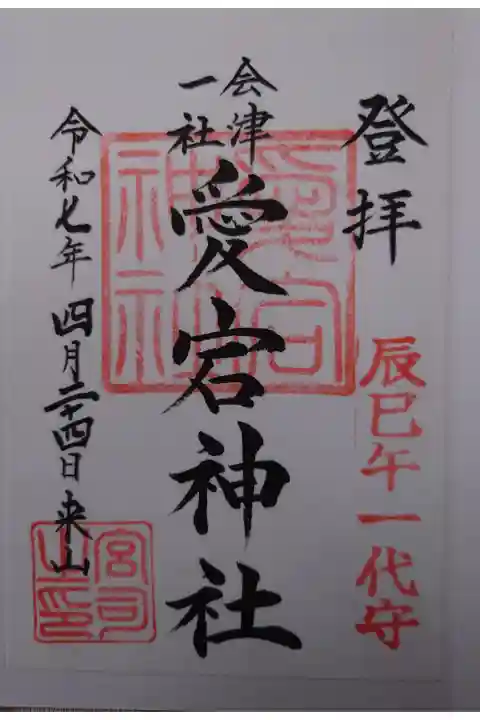 登拝
辰巳午一代守
会津
一社
愛宕神社
令和七年四月二十四日来山
愛宕
神社
宮司
之印